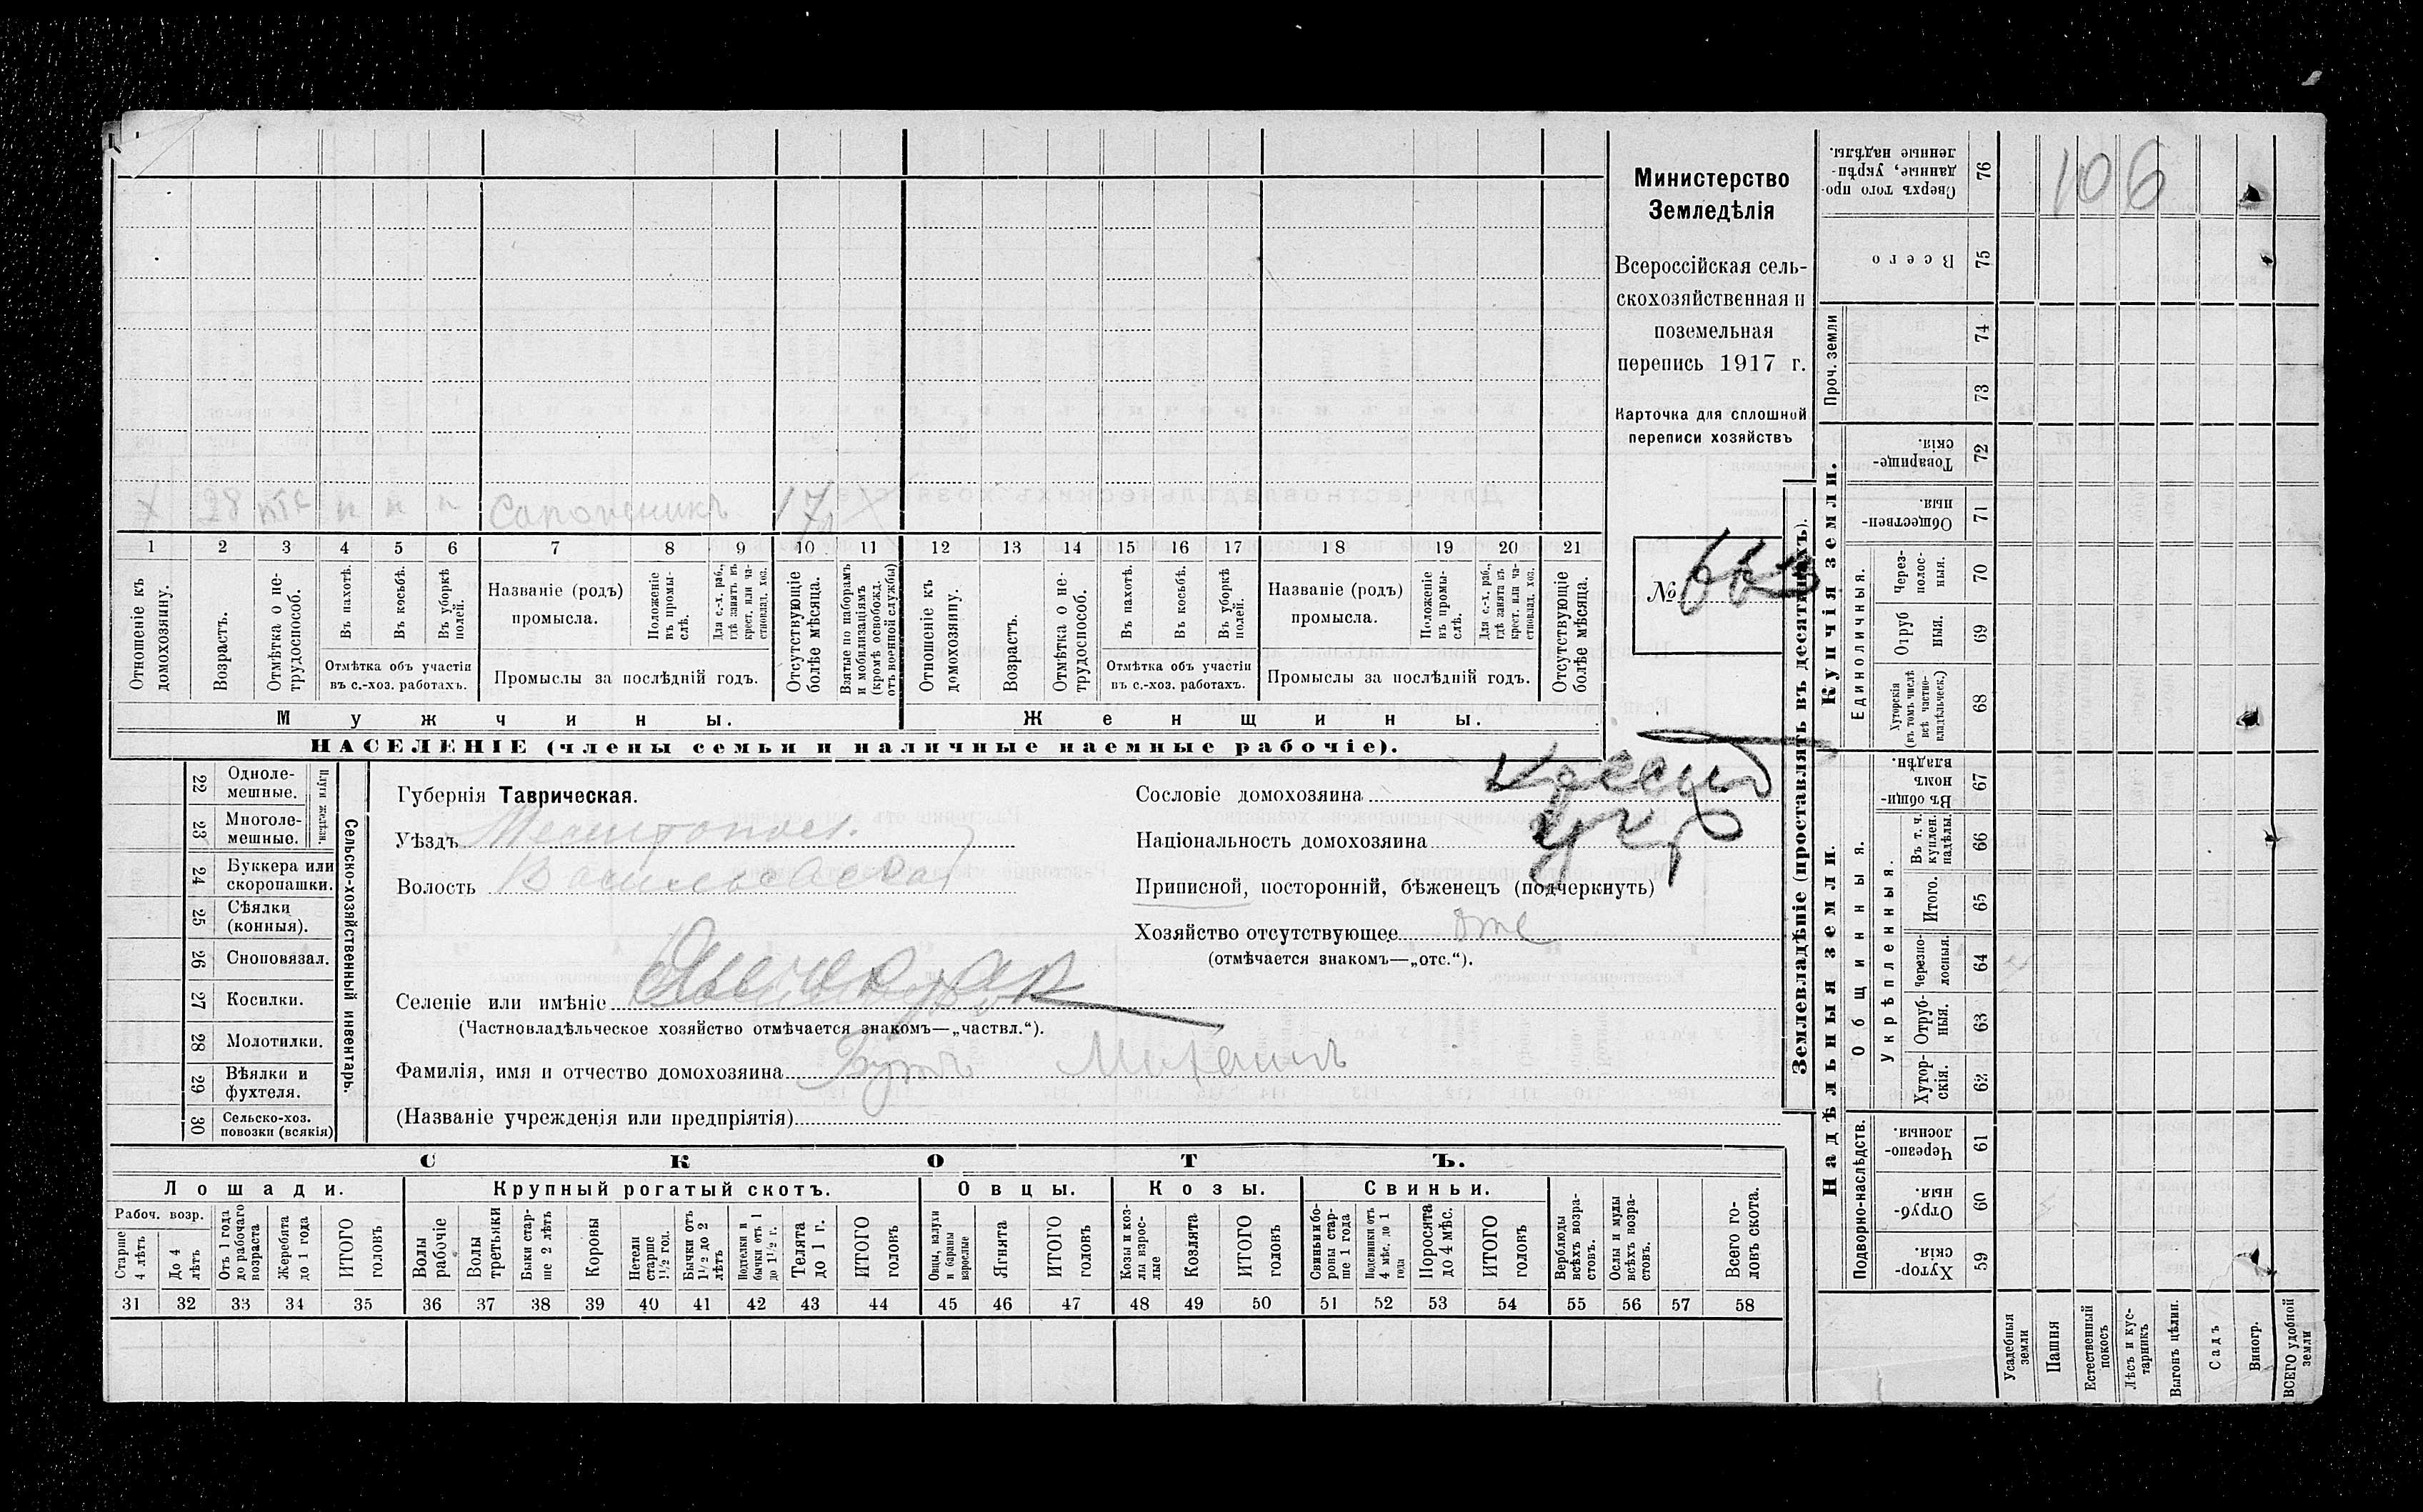 106
Министерство
Земледѣлія
Всероссійская сель-
скохозяйственная и
поземельная
перепись 1917 г.
Карточка для сплошной
переписи хозяйствъ
№
х 28 н н н Сапожникъ
1 2 3 4 5 6 7 8 9 10 11 12 13 14 15 16 17 18 19 20 21
Отношеніе къ домохозяину.
Возрастъ.
Отмѣтка о не-трудоспособ.
Въ пахотѣ.
Въ косьбѣ.
Въ уборкѣ полей.
Отмѣтка объ участіи
въ с.-хоз. работахъ.
Названіе (родъ)
промысла.
Положеніе въ промы-слѣ.
Для с.-х. раб., гдѣ занятъ въ крест. или ча-стновлад. хоз.
Промыслы за послѣдній годъ.
Отсутствующіе болѣе мѣсяца.
Взятые по наборамъ и мобилизаціямъ (кромѣ освобожд. отъ военной службы)
Отношеніе къ домохозяину.
Возрастъ.
Отмѣтка о не-трудоспособ.
Въ пахотѣ.
Въ косьбѣ.
Въ уборкѣ полей.
Отмѣтка объ участіи
въ с.-хоз. работахъ.
Названіе (родъ)
промысла.
Положеніе въ промы-слѣ.
Для с.-х. раб., гдѣ занята въ крест. или ча-стновлад. хоз.
Промыслы за послѣдній годъ.
Отсутствующіе болѣе мѣсяца.
Мужчины.
Женщины.
НАСЕЛЕНІЕ (члены семьи и наличные наемные рабочіе).
Сельско-хозяйственный инвентарь.
Плуги желѣзн.
22 Одноле-мешные.
23 Многоле-мешные.
24 Буккера или скоропашки.
25 Сѣялки (конныя).
26 Сноповязал.
27 Косилки.
28 Молотилки.
29 Вѣялки и фухтеля.
30 Сельско-хоз. повозки (всякія)
Губернія Таврическая.
Уѣздъ Мелитопол.
Волость Васильевская
Селеніе или имѣніе
(Частновладѣльческое хозяйство отмѣчается знакомъ—„частвл.“).
Фамилія, имя и отчество домохозяина Михаилъ
(Названіе учрежденія или предпріятія)
Сословіе домохозяина
Національность домохозяина
Приписной, посторонній, бѣженецъ (подчеркнуть)
Хозяйство отсутствующее отс
(отмѣчается знакомъ—„отс.“).
СКОТЪ.
Лошади.
Крупный рогатый скотъ.
Овцы.
Козы.
Свиньи.
Рабоч. возр.
Старше 4 лѣтъ
До 4 лѣтъ
Отъ 1 года до рабочаго возраста
Жеребята до 1 года
ИТОГО головъ
Волы рабочіе
Волы третьяки
Быки стар-ше 2 лѣтъ
Коровы
Нетели старше 1½ год.
Бычки отъ 1½ до 2 лѣтъ
Подтелки и бычки отъ 1 до 1½ г.
Телята до 1 г.
ИТОГО головъ
Овцы, валухи и бараны взрослые
Ягнята
ИТОГО головъ
Козы и коз-лы взрос-лые
Козлята
ИТОГО головъ
Свиньи и бо-ровы стар-ше 1 года
Подсвинки отъ 4 мѣс. до 1 года
Поросята до 4 мѣс.
ИТОГО головъ
Верблюды всѣхъ возра-стовъ.
Ослы и мулы всѣхъ возра-стовъ.
Всего го-ловъ скота.
31 32 33 34 35 36 37 38 39 40 41 42 43 44 45 46 47 48 49 50 51 52 53 54 55 56 57 58
Землевладѣніе (проставлять въ десятинахъ).
Купчія земли.
Надѣльныя земли.
Проч. земли
Единоличныя.
Общинныя.
Укрѣпленныя.
Подворно-наслѣдств.
76 Сверхъ того про-данные, укрѣп-ленные надѣлы.
75 Всего
74
73
72 Товарище-скія.
71 Обществен-ныя.
70 Через-полос-ныя.
69 Отруб ныя.
68 Хуторскія (въ томъ числѣ всѣ частно-владѣльческ.)
67 Въ общи-номъ владѣн.
66 Въ т. ч. куплен. надѣлы.
65 Итого.
64 Черезпо-лосныя.
63 Отруб-ныя.
62 Хутор-скія.
61 Черезпо-лосныя.
60 Отруб-ныя.
59 Хутор-скія.
Усадебныя земли
Пашня
Естественный покосъ
Лѣсъ и кус-тарникъ
Выгонъ цѣлин.
Садъ
Виногр.
ВСЕГО удобной земли